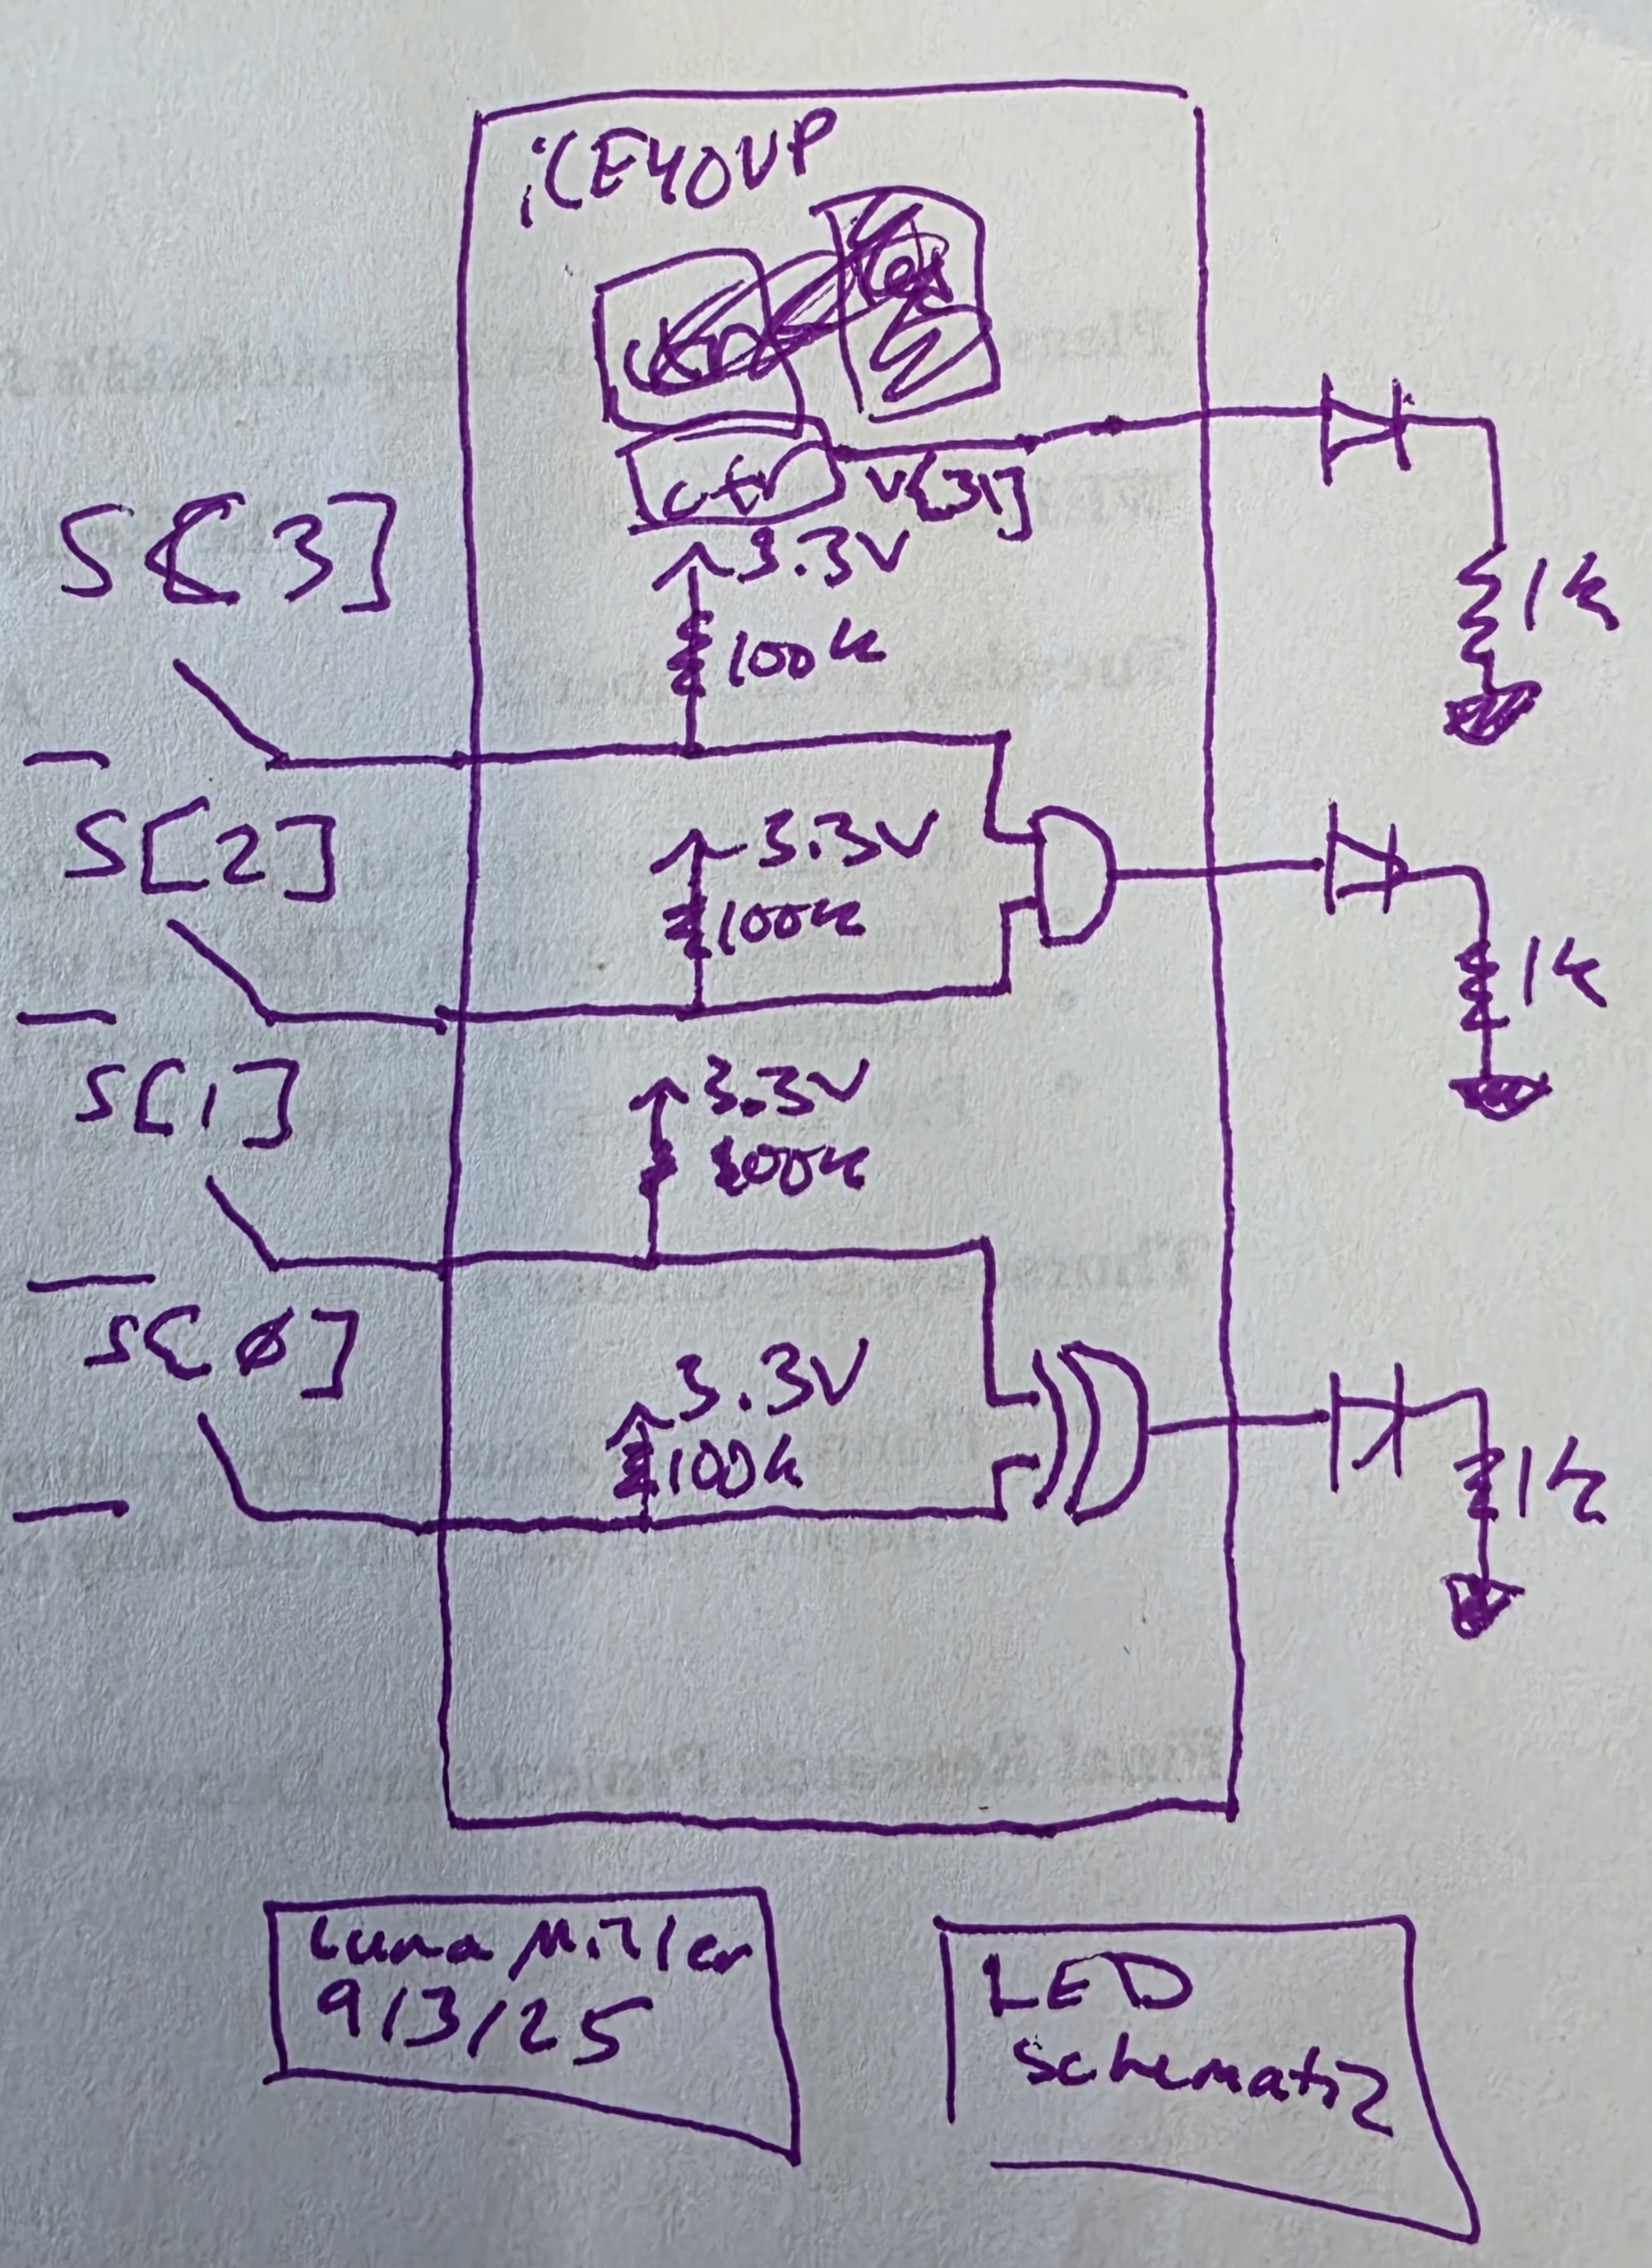 iCE40UP
ctr
V[31]
S[3]
3.3V
100k
1k
S[2]
3.3V
100k
1k
S[1]
3.3V
100k
S[0]
3.3V
100k
1k
Luna Miller
9/3/25
LED
schematic